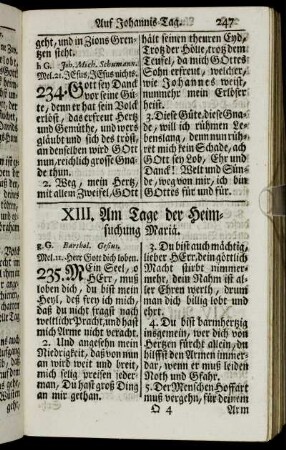 Auf Johannis-Tag. 247
geht, und in Zions Gren-
tzen sieht.
h G. Joh. Mich. Schumann.
Mel. 21. JEsus, JEsus nichts.
234. Gott sey Danck
vor seine Gü-
te, denn er hat sein Volck
erlöst, das erfreut Hertz
und Gemüthe, und wers
gläubt und sich des tröst,
an denselben wird GOtt
nun, reichlich grosse Gna-
de thun.
2. Weg, mein Hertz,
mit allem Zweifel, GOtt
hält seinen theuren Eyd,
Trotz der Hölle, trotz dem
Teufel, da mich GOttes
Sohn erfreut, welcher,
wie Johannes weist,
nunmehr mein Erlöser
heist.
3. Diese Güte, diese Gna-
de, will ich rühmen Le-
benslang, denn nun rüh-
ret mich kein Schade, ach
GOtt sey Lob, Ehr und
Danck! Welt und Sün-
de, weg von mir, ich bin
GOttes für und für.
XIII. Am Tage der Heim-
suchung Mariä.
g. G. Barthol. Gesius.
Mel. 11. Herr Gott dich loben.
235. MEin Seel, o
HErr, muß
loben dich, du bist mein
Heyl, deß frey ich mich,
daß du nicht fragst nach
weltlicher Pracht, und hast
mich Arme nicht veracht.
2. Und angesehn mein
Niedrigkeit, daß von nun
an wird weit und breit,
mich selig preisen jeder-
man, Du hast groß Ding
an mir gethan.
3. Du bist auch mächtig,
lieber HErr, dein göttlich
Macht stirbt nimmer-
mehr, dein Nahm ist al-
ler Ehren werth, drum
man dich billig lobt und
ehrt.
4. Du bist barmhertzig
insgemein, wer dich von
Hertzen fürcht allein, du
hilffst den Armen immer-
dar, wenn er muß leiden
Noth und Gfahr.
5. Der Menschen Hoffart
muß vergehn, für deinem
Q 4 Arm